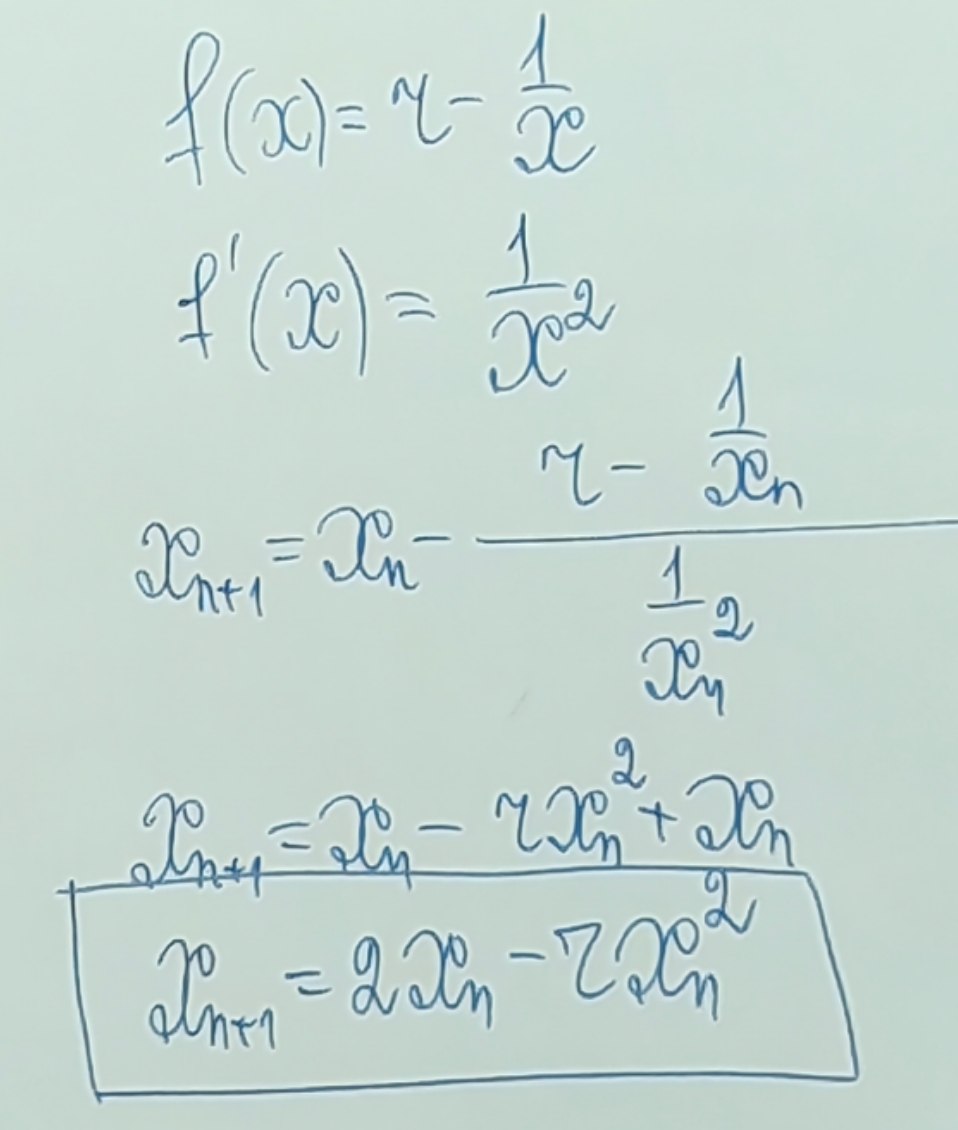 f(x) = r - 1/x
f'(x) = 1/x²
xₙ₊₁ = xₙ - (r - 1/xₙ)/(1/xₙ²)
xₙ₊₁ = xₙ - rxₙ² + xₙ
xₙ₊₁ = 2xₙ - rxₙ²